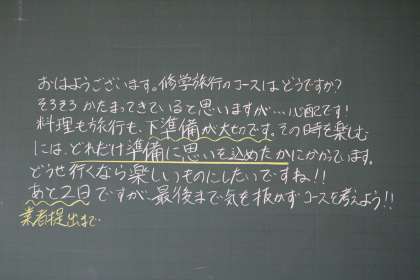 おはようございます。修学旅行のコースはどうですか？
そろそろかたまってきていると思いますが…心配です！
料理も旅行も、下準備が大切です。その時を楽しむ
には、どれだけ準備に思いを込めたかにかかっています。
どうせ行くなら楽しいものにしたいですね！！
あと2日ですが、最後まで気を抜かずコースを考えよう！！
業者提出まで